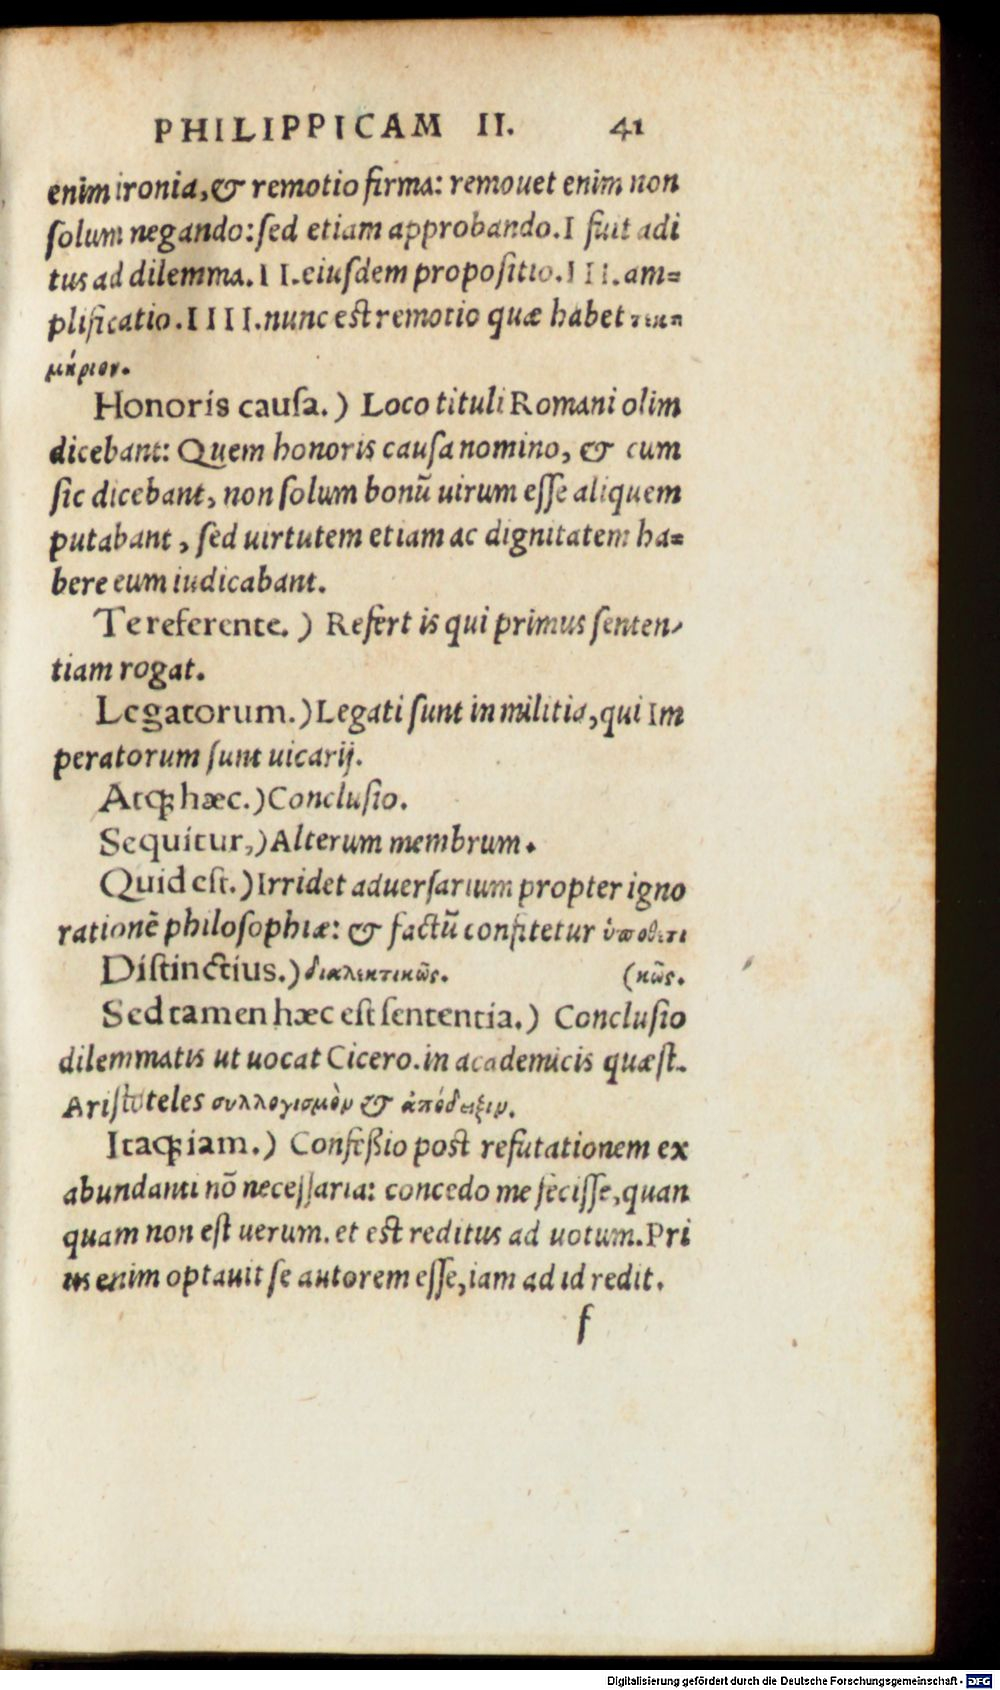 PHILIPPICAM II. 41
enim ironia, & remotio firma: remouet enim non
ſolum negando: ſed etiam approbando. I fuit adi
tus ad dilemma. I I. eiuſdem propoſitio. I I I. am=
plificatio. I I I I. nunc eſt remotio quæ habet τεκη
μήριον.
Honoris cauſa.) Loco tituli Romani olim
dicebant: Quem honoris cauſa nomino, & cum
ſic dicebant, non ſolum bonū uirum eſſe aliquem
putabant, ſed uirtutem etiam ac dignitatem ha=
bere eum iudicabant.
Te referente.) Refert is qui primus ſenten-
tiam rogat.
Legatorum.) Legati ſunt in militia, qui Im
peratorum ſunt uicarij.
Atqꝫ hæc.) Concluſio.
Sequitur,) Alterum membrum.
Quid eſt.) Irridet aduerſarium propter igno
rationē philoſophiæ: & factū confitetur ὑποθετι
Diſtinctius.) διαλεκτικῶς. (κῶς.
Sed tamen hæc eſt ſententia.) Concluſio
dilemmatis ut uocat Cicero. in academicis quæſt.
Ariſtoteles συλλογισμὸν & ἀπόδειξιν.
Itaqꝫ iam.) Confeßio poſt refutationem ex
abundanti nō neceſſaria: concedo me feciſſe, quan
quam non eſt uerum. et eſt reditus ad uotum. Pri
us enim optauit ſe autorem eſſe, iam ad id redit.
f
Digitalisierung gefördert durch die Deutsche Forschungsgemeinschaft - DFG